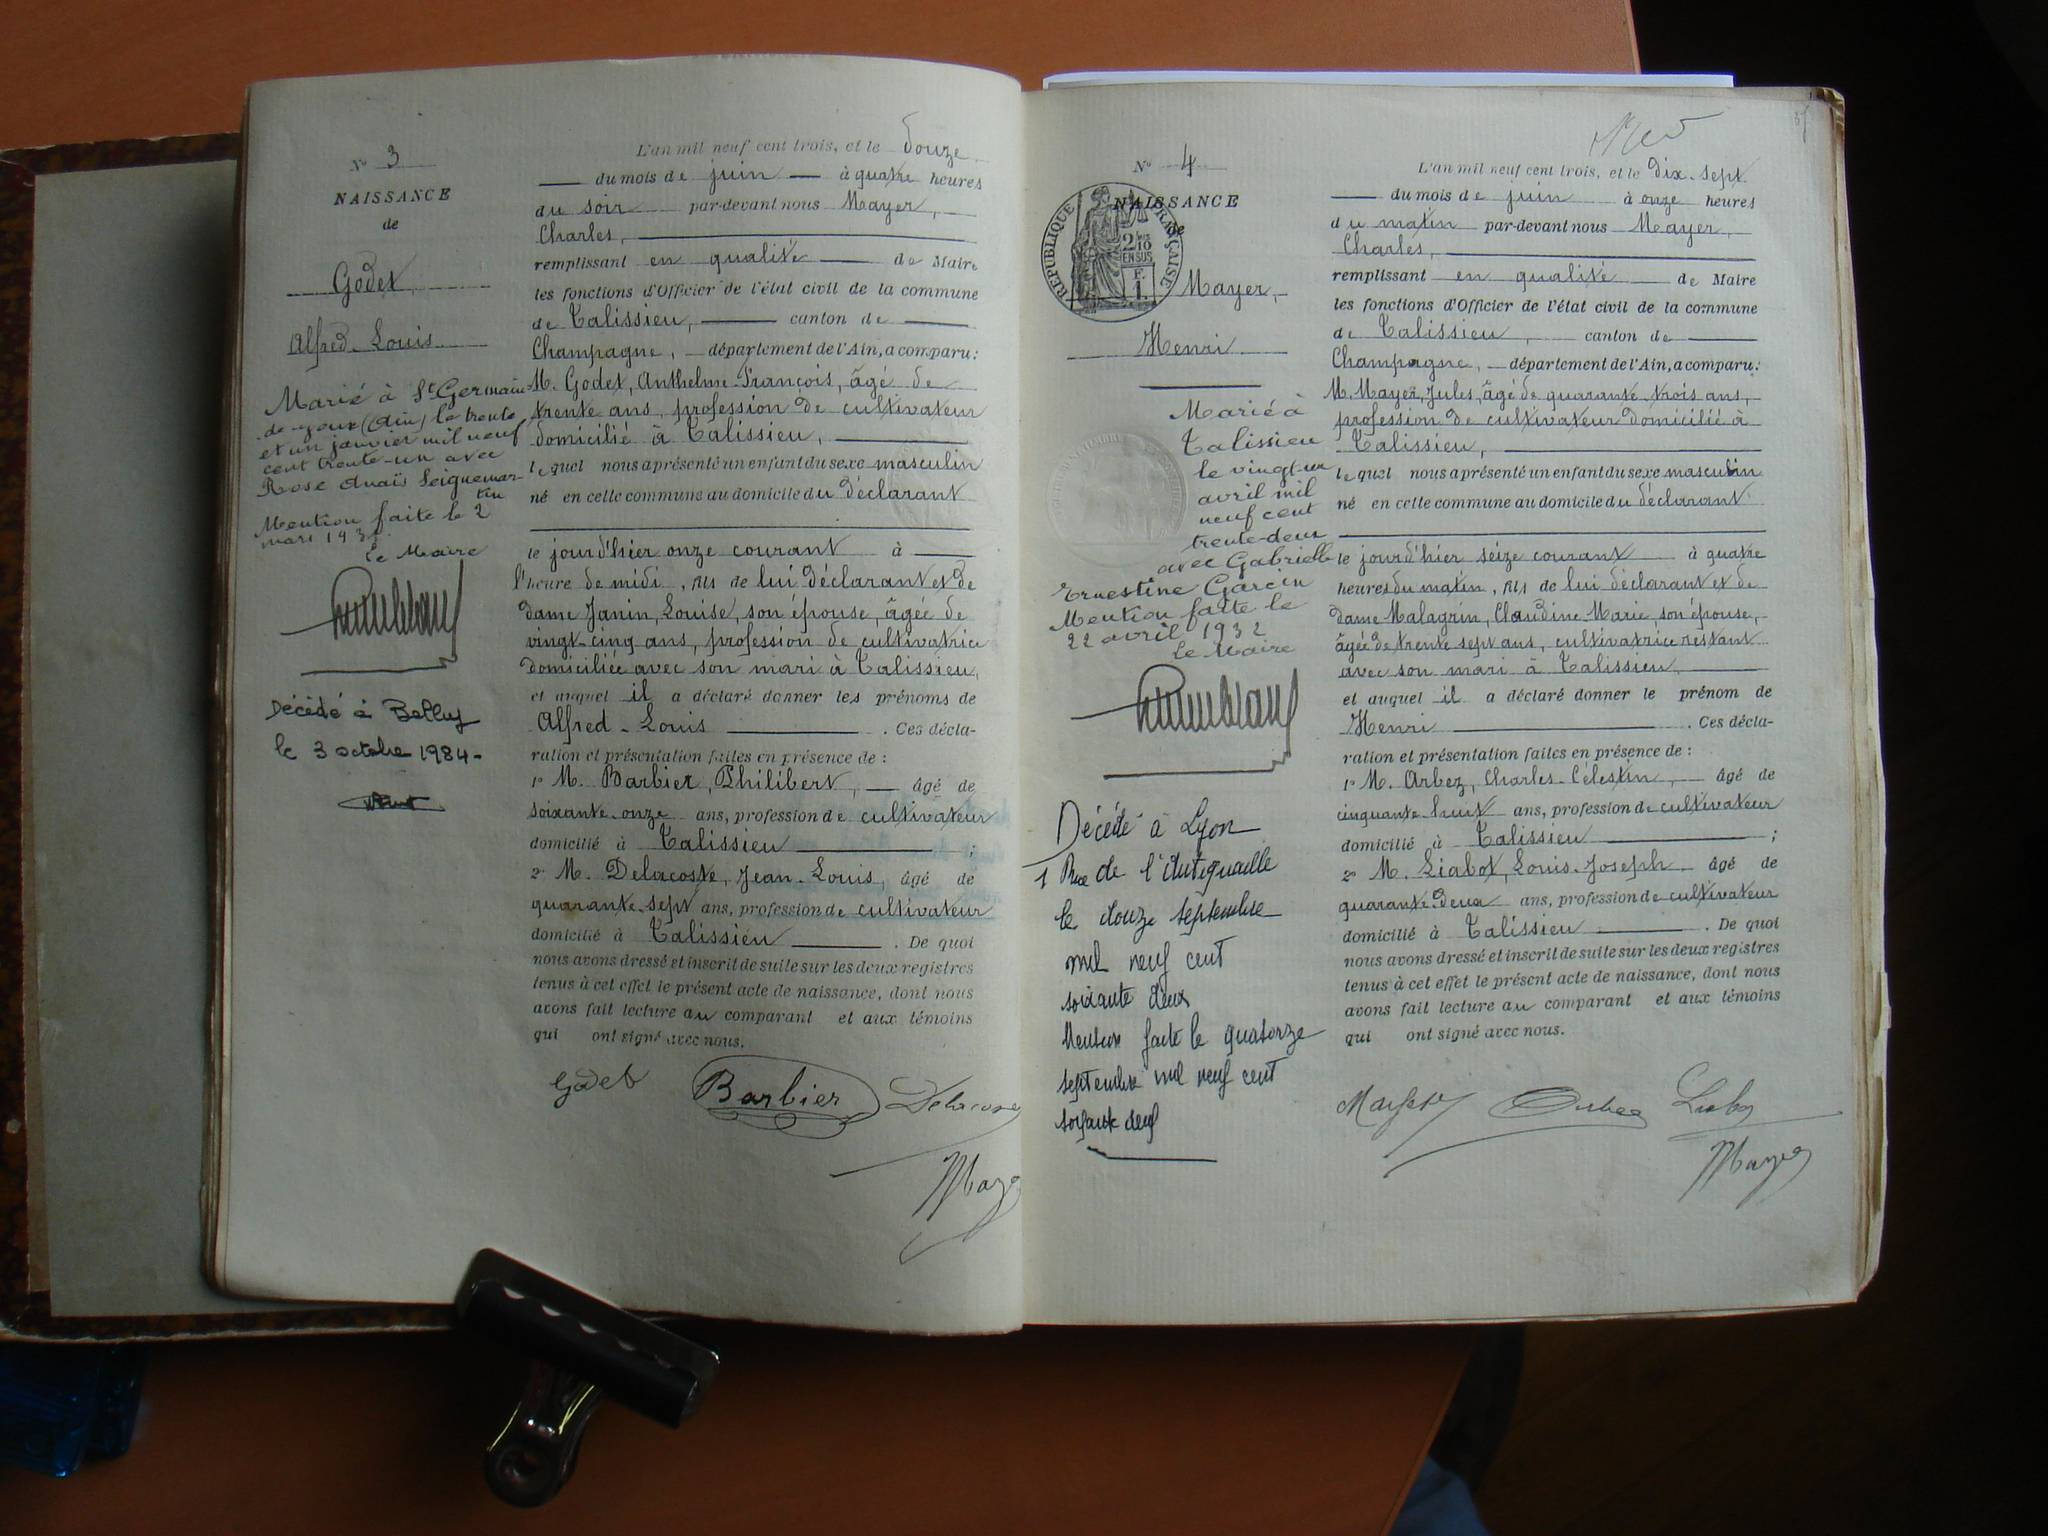 N° 3
NAISSANCE
de
Godet
Alfred-Louis
Marié à St Germain
(Ain) le trente
et un janvier mil neuf
cent trente-un avec
Rose
Mention faite le 2
mars
Le Maire
Décédé à Belley
le 3 octobre 1984-
L'an mil neuf cent trois, et le douze
du mois de juin à quatre heures
du soir par-devant nous Mayer,
Charles,
remplissant en qualité de Maire
les fonctions d'Officier de l'état civil de la commune
de Talissieu, canton de
Champagne, département de l'Ain, a comparu:
M. Godet, Anthelme-François, âgé de
trente ans, profession de cultivateur
domicilié à Talissieu,
lequel nous a présenté un enfant du sexe masculin
né en cette commune au domicile du déclarant
le jour d'hier onze courant à
l'heure de midi, fils de lui déclarant et de
dame Janin, Louise, son épouse, âgée de
vingt-cinq ans, profession de cultivatrice
domiciliée avec son mari à Talissieu,
et auquel il a déclaré donner les prénoms de
Alfred-Louis. Ces décla-
ration et présentation faites en présence de :
1° M. Barbier, Philibert, âgé de
soixante-onze ans, profession de cultivateur
domicilié à Talissieu ;
2° M. Delacoste, Jean-Louis, âgé de
quarante-sept ans, profession de cultivateur
domicilié à Talissieu. De quoi
nous avons dressé et inscrit de suite sur les deux registres
tenus à cet effet le présent acte de naissance, dont nous
avons fait lecture au comparant et aux témoins
qui ont signé avec nous.
Godet Barbier Delacoste
Mayer
N° 4
NAISSANCE
de
RÉPUBLIQUE FRANÇAISE
2/10
EN SUS
F.
1
Mayer,
Henri
Marié à
Talissieu
le vingt-un
avril mil
neuf cent
trente-deux
avec Gabrielle
Ernestine Garcin
Mention faite le
22 avril 1932
Le Maire
Décédé à Lyon
1 Rue de l'Antiquaille
le douze septembre
mil neuf cent
soixante deux
Mention faite le quatorze
septembre mil neuf cent
L'an mil neuf cent trois, et le dix-sept
du mois de juin à onze heures
du matin par-devant nous Mayer,
Charles,
remplissant en qualité de Maire
les fonctions d'Officier de l'état civil de la commune
de Talissieu, canton de
Champagne, département de l'Ain, a comparu:
M. Mayer, Jules, âgé de quarante-trois ans,
profession de cultivateur domicilié à
Talissieu,
lequel nous a présenté un enfant du sexe masculin
né en cette commune au domicile du déclarant
le jour d'hier seize courant à quatre
heures du matin, fils de lui déclarant et de
dame Malagrin, Claudine-Marie, son épouse,
âgée de trente sept ans, cultivatrice restant
avec son mari à Talissieu,
et auquel il a déclaré donner le prénom de
Henri. Ces décla-
ration et présentation faites en présence de :
1° M. Arbez, Charles-Célestin, âgé de
cinquante-huit ans, profession de cultivateur
domicilié à Talissieu ;
2° M. Liabot, Louis-Joseph âgé de
quarante-deux ans, profession de cultivateur
domicilié à Talissieu. De quoi
nous avons dressé et inscrit de suite sur les deux registres
tenus à cet effet le présent acte de naissance, dont nous
avons fait lecture au comparant et aux témoins
qui ont signé avec nous.
Mayer